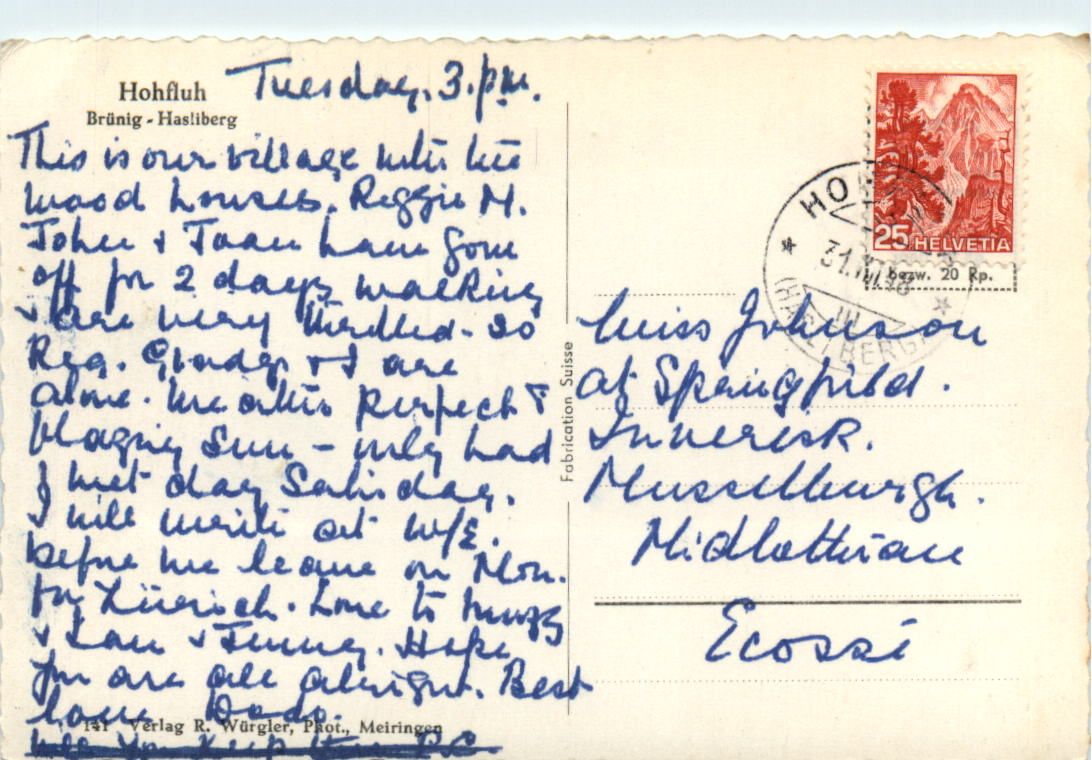 Hohfluh
Brünig - Hasliberg
Tuesday. 3.pm.
This is our village with the
wood houses. Reggie M.
John & Joan have gone
off for 2 days walking
& are very thrilled - so
Reg. Gladys & I are
alone. Weather perfect &
blazing sun - only had
1 wet day Saturday.
I will write at w/e.
before we leave on Mon.
for Zürich. Love to
& Ian & Jenny. Hope
you are all alright. Best
love Dodo.
will you keep this P.C.
141 Verlag R. Würgler, Phot., Meiringen
Fabrication Suisse
25 HELVETIA
bezw. 20 Rp.
31.
(HASLIBERG)
Miss Johnson
at Springfield.
Inveresk.
Musselburgh.
Midlothian
Ecosse